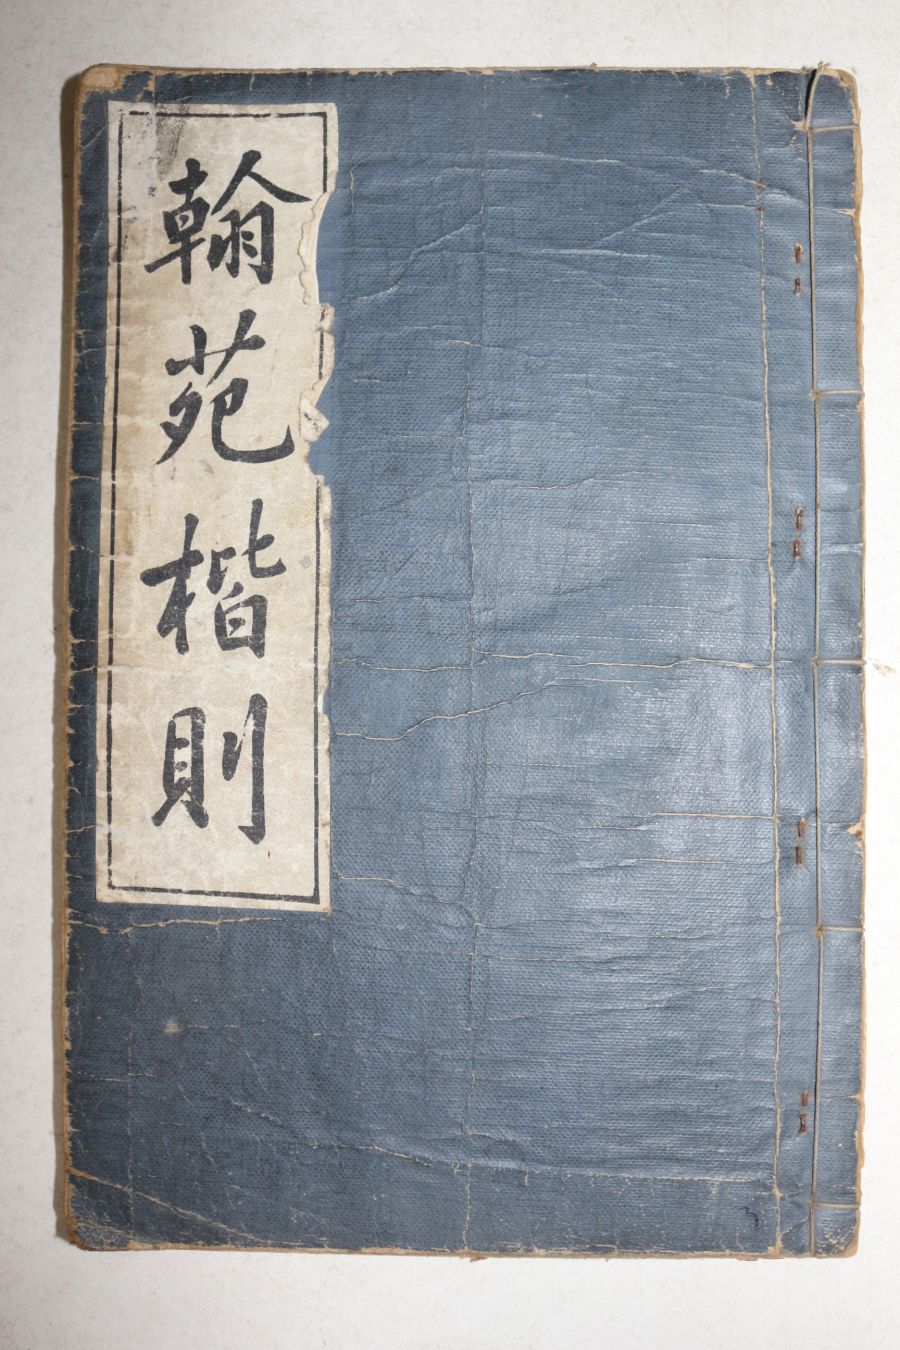 翰苑楷則